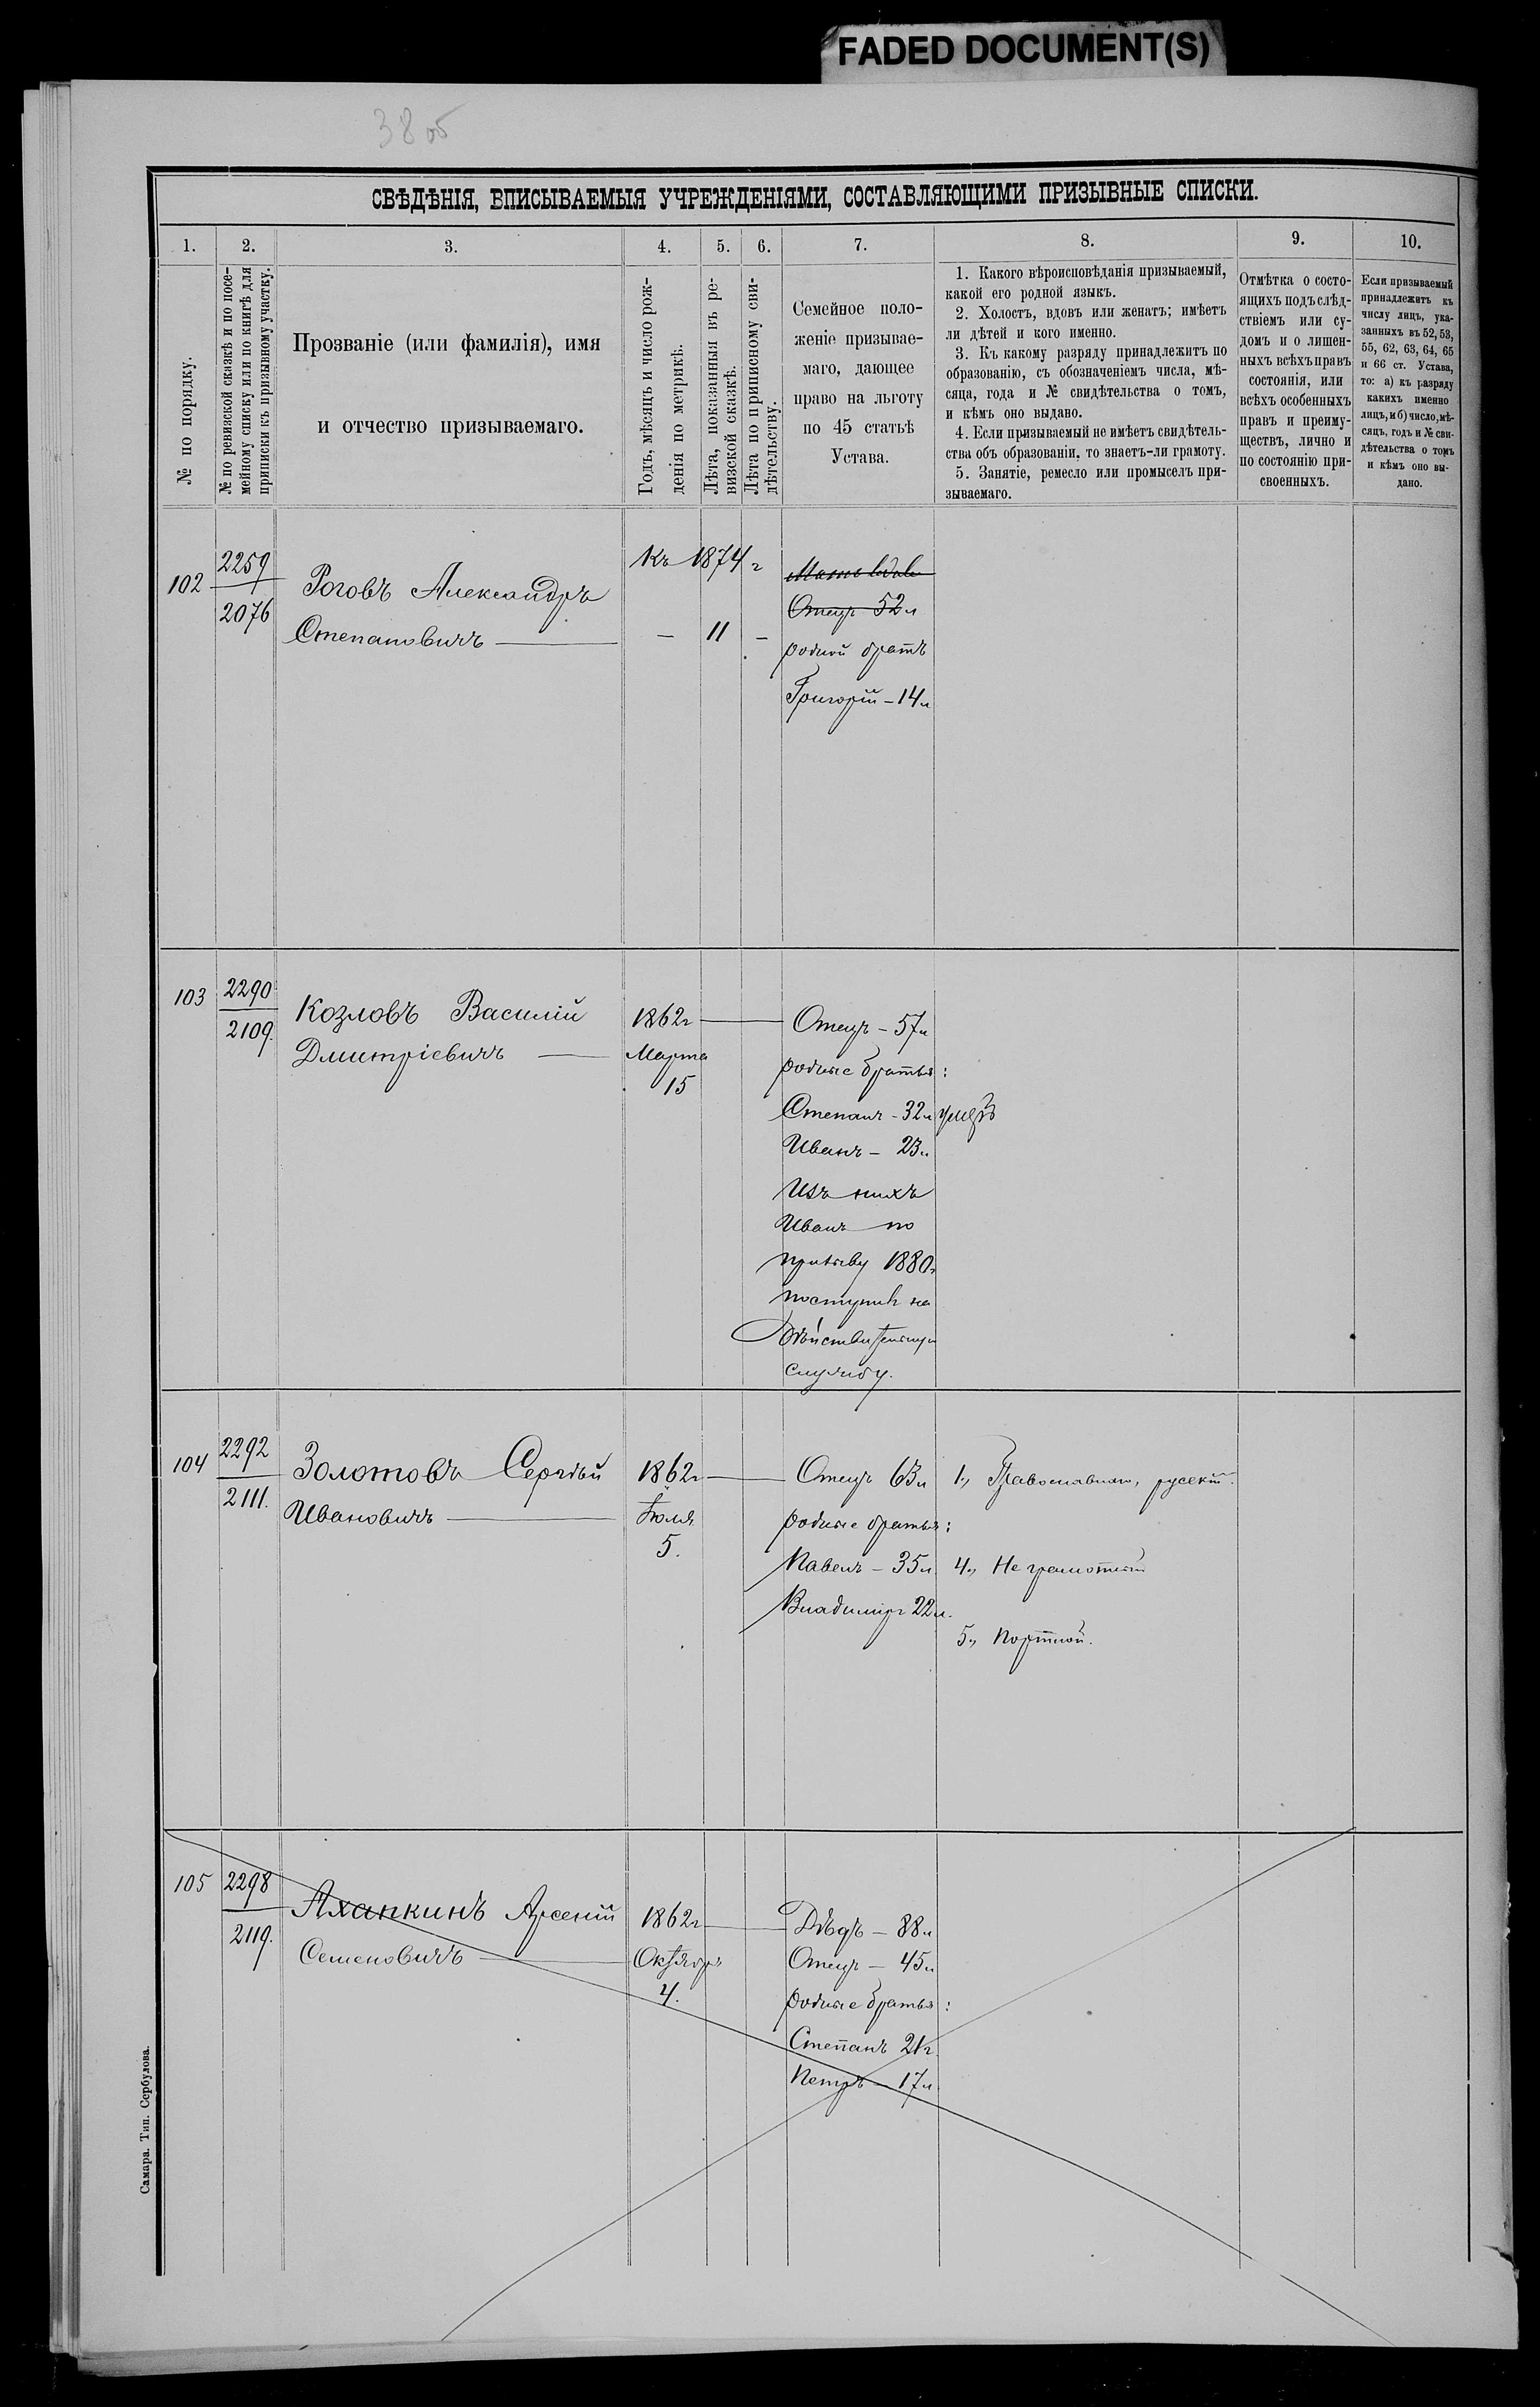 FADED DOCUMENT(S)
38 об
СВѢДѢНІЯ, ВПИСЫВАЕМЫЯ УЧРЕЖДЕНІЯМИ, СОСТАВЛЯЮЩИМИ ПРИЗЫВНЫЕ СПИСКИ.
1. 2. 3. 4. 5. 6. 7. 8. 9. 10.
№ по порядку.
№ по ревизской сказкѣ и по посе-
мейному списку или по книгѣ для
приписки къ призывному участку.
Прозваніе (или фамилія), имя
и отчество призываемаго.
Годъ, мѣсяцъ и число рож-
денія по метрикѣ.
Лѣта, показанныя въ ре-
визской сказкѣ.
Лѣта по приписному сви-
дѣтельству.
Семейное поло-
женіе призывае-
маго, дающее
право на льготу
по 45 статьѣ
Устава.
1. Какого вѣроисповѣданія призываемый,
какой его родной языкъ.
2. Холостъ, вдовъ или женатъ; имѣетъ
ли дѣтей и кого именно.
3. Къ какому разряду принадлежитъ по
образованію, съ обозначеніемъ числа, мѣ-
сяца, года и № свидѣтельства о томъ,
и кѣмъ оно выдано.
4. Если призываемый не имѣетъ свидѣтель-
ства объ образованіи, то знаетъ-ли грамоту.
5. Занятіе, ремесло или промыселъ при-
зываемаго.
Отмѣтка о состо-
ящихъ подъ слѣд-
ствіемъ или су-
домъ и о лишен-
ныхъ всѣхъ правъ
состоянія, или
всѣхъ особенныхъ
правъ и преиму-
ществъ, лично и
по состоянію при-
своенныхъ.
Если призываемый
принадлежитъ къ
числу лицъ, ука-
занныхъ въ 52, 53,
55, 62, 63, 64, 65
и 66 ст. Устава,
то: а) къ разряду
какихъ именно
лицъ, и б) число, мѣ-
сяцъ, годъ и № сви-
дѣтельства о томъ
и кѣмъ оно вы-
дано.
102
2259
2076
Роговъ Александръ
Степановичъ
Къ 1874 г
— 11 —
Отецъ 52 л
родной братъ
Григорій — 14 л
103
2290
2109.
Козловъ Василій
Дмитріевичъ
1862 г
Марта
15
Отецъ — 57 л
родные братья:
Степанъ — 32 л умеръ
Иванъ — 23 л
Изъ нихъ
Иванъ по
призыву 1880 г
поступилъ на
Дѣйствительную
службу.
104
2292
2111.
Золотовъ Сергѣй
Ивановичъ
1862 г
Іюля
5.
Отецъ 63 л
родные братья:
Павелъ — 35 л
Владиміръ 22 л.
1., Православнаго, русскій.
4., Не грамотный
5., Портной.
105
2298
2119.
Аханкинъ Арсеній
Семеновичъ
1862 г
Октября
4.
Дѣдъ — 88 л
Отецъ — 45 л
родные братья:
Степанъ 21 г
Петръ — 17 л.
Самара. Тип. Сербулова.